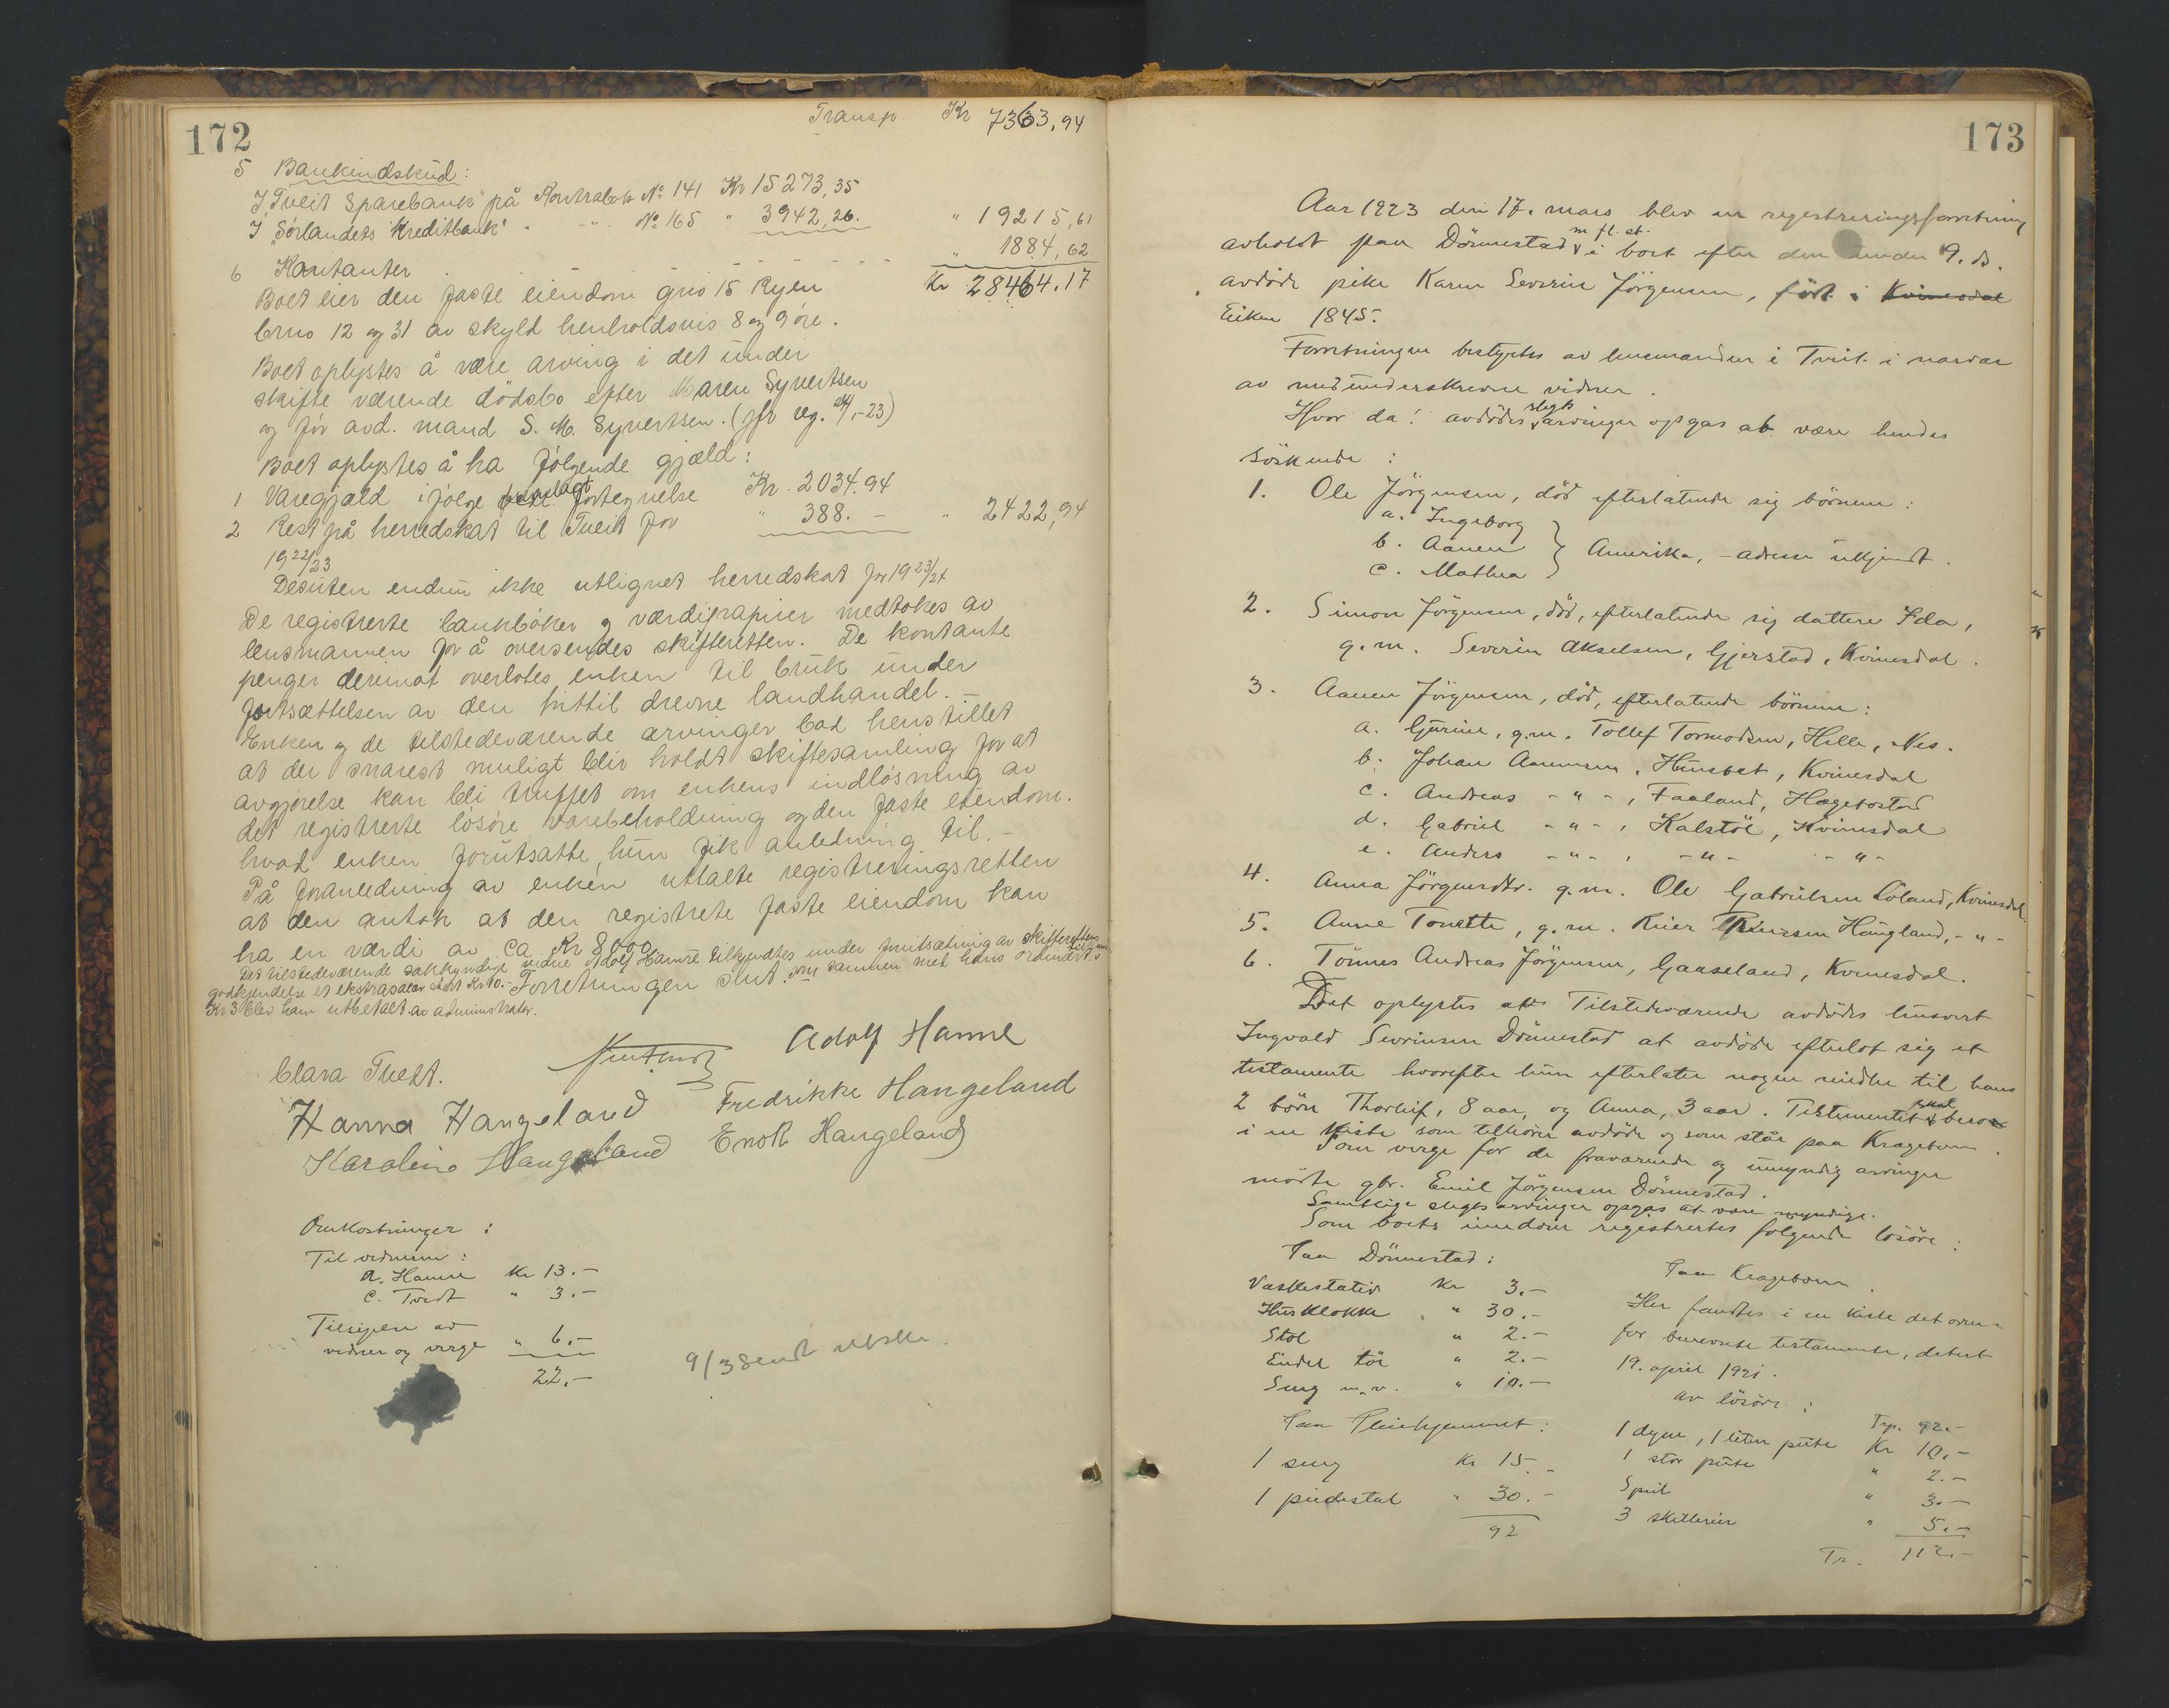 172
Transp Kr 7363,94
5 Bankindskud:
I "Tveit Sparebank" på Kontrabok No. 141 Kr 15273,35
I "Sörlandets Kreditbank" - " - No. 165 " 3942,26. " 19215,61
6 Kontanter . . . " 1884,62
Kr 28464.17
Boet eier den faste eiendom gno 15 Ryen
bno 12 og 31 av skyld henholdsvis 8 og 9 øre.
Boet oplystes å være arving i det under
skifte værende dödsbo efter Maren Syvertsen
og för avd. mand S. M. Syvertsen. (jfr reg. 24/1-23)
Boet oplystes å ha fölgende gjæld:
1 Varegjæld ifölge fremlagt fortegnelse Kr. 2034.94
2 Rest på herredskat til Tveit for " 388.- " 2422,94
1922/23
Desuten endnu ikke utlignet herredskat for 1923/24
De registrerte bankböker og værdipapirer medtokes av
lensmannen for å oversendes skifteretten. De kontante
penger derimot overlotes enken til bruk under
fortsættelsen av den hittil drevne landhandel.-
Enken og de tilstedeværende arvinger bad henstillet
at der snarest muligt blir holdt skiftesamling for at
avgjörelse kan bli truffet om enkens indlösning av
det registrerte lösöre varebeholdning og den faste eiendom.
hvad enken forutsatte, hun fik anledning til.-
På foranledning av enken uttalte registreringsretten
at den antok at den registrete faste eiendom kan
ha en værdi av ca Kr 8000.
Det tilstedeværende sakkyndige vidne Adolf Hamre tilkjendtes under forutsætning av Skifterettens
godkjendelse et ekstrasalær stort Kr 10.- Forretningen slut. som sammen med hans ordinært
Kr 3 blev ham utbetalt av administrator.
Adolf Hamre
Clara Tveit.
Hanna Hangeland Fredrikke Hangeland
Karoline Hangeland Enok Hangeland
Omkostninger :
Til vidnerne :
A. Hamre Kr 13.-
C. Tveit " 3.-
Tilsigelse av
vidner og verge " 6.-
22.-
9/3 sendt utskr.
173
Aar 1923 den 17. mars blev en registreringsforretning
avholdt paa Dönnestad m fl. st. i boet efter den under 9. ds.
avdöde pike Karen Severine Jörgensen, födt i Kvinesdal
Eiken 1845.
Forretningen bestyrtes av lensmanden i Tveit i nærvær
av medunderskrevne vidner.
Hvor da! avdödes slegts arvinger opgas at være hendes
söskende :
1. Ole Jörgensen, död efterlatende sig börnene :
a. Ingeborg
b. Aanen } Amerika, - adresse ukjendt.
c. Mathea
2. Simon Jörgensen, död, efterlatende sig datteren Ida,
g. m. Severin Akselsen, Gjerstad, Kvinesdal.
3. Aanen Jörgensen, död, efterlatende börnene :
a. Gurine, g.m. Tollef Tormodsen, Helle, Nes.
b. Johan Aanensen, Hunsbet, Kvinesdal
c. Andreas - " - , Faaland, Hægebostad
d. Gabriel - " - , Kalstöl, Kvinesdal
e. Anders - " - , - " - - " -
4. Anna Jörgensdtr. g.m. Ole Gabrielsen Löland, Kvinesdal
5. Anne Tonette, g.m. Reier Reiersen Haugland, - " -
6. Tönnes Andreas Jörgensen, Gaaseland, Kvinesdal.
Det oplystes av Tilstedeværende avdödes husvert
Ingvald Severinsen Dönnestad at avdöde efterlot sig et
testamente hvorefter hun efterlater nogen midler til hans
2 börn Thorleif, 8 aar, og Anna, 3 aar. Testamentet skal bero
i en kiste som tilhörer avdöde og som står paa Kragebom.
Som verge for de fraværende og umyndig arvinger
mötte gbr. Emil Jörgensen Dönnestad.
Samtlige slegtsarvinger opgas at være myndige.
Som boets eiendom registrertes fölgende lösöre :
Paa Dönnestad :
Vaskestativ Kr 3.-
Husklokke " 30.-
Stol " 2.-
Endel töi " 2.-
Seng m.v. " 10.-
Paa Pleiehjemmet :
1 seng Kr 15.-
1 piedestal " 30.-
92
Paa Kragebom
Her fandtes i en kiste det oven-
for benevnte testamente, datert
19. april 1921.
Av lösöre :
Trp. 92.-
1 dyne, 1 liten pute Kr 10.-
1 stor pute " 2.-
Speil " 3.-
3 skillerier " 5.-
Tr. 112.-